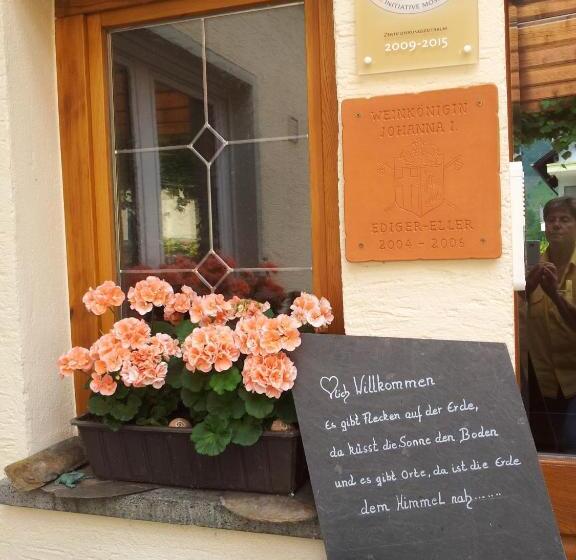 INITIATIVE
2009-2015
WEINKÖNIGIN
JOHANNA I.
EDIGER-ELLER
2004 - 2006
♡lich Willkommen
Es gibt Flecken auf der Erde,
da küsst die Sonne den Boden
und es gibt Orte, da ist die Erde
dem Himmel nah.......